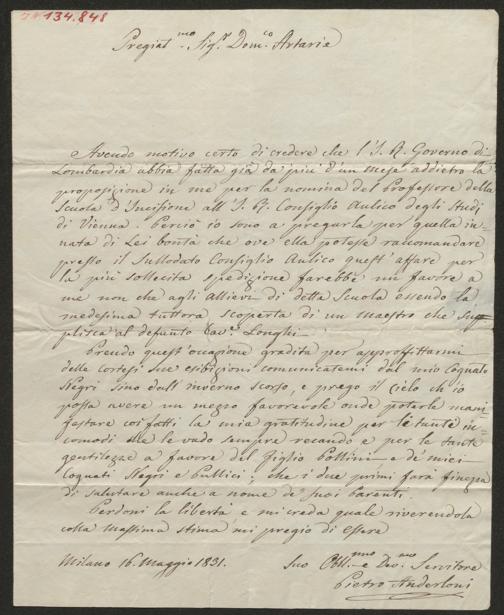 134.848
Pregiat.mo Sig.r Dom.co Artaria
Avendo motivo certo di credere che l'I. R. Governo di
Lombardia abbia fatta già da più d'un mese addietro la
proposizione in me per la nomina del Professore della
Scuola d'Incisione all'I. R. Consiglio Aulico degli Studj
di Vienna. Perciò io sono a pregarla per quella in-
nata di Lei bontà che ove ella potesse raccomandare
presso il Sullodato Consiglio Aulico quest'affare per
la più sollecita spedizione farebbe un favore a
me non che agli Allievi di detta Scuola essendo la
medesima tuttora scoperta di un maestro che sup-
plisca al defunto Cav.e Longhi.
Prendo quest'occasione gradita per approfittarmi
delle cortesi sue esibizioni comunicatemi dal mio Cognato
Negri sino dall'inverno scorso, e prego il Cielo ch'io
possa avere un mezzo favorevole onde poterle mani
festare coi fatti la mia gratitudine per le tante in-
comodi che le vado sempre recando e per le tante
gentilezze a favore del Figlio Pollini e de' miei
Cognati Negri e Bullici; che i due primi farà finezza
di salutare anche a nome de' suoi parenti.
Perdoni la libertà e mi creda quale riverendola
colla massima stima mi pregio di essere
Milano 16. Maggio 1831.
Suo Obbl.mo e Dev.mo Servitore
Pietro Anderloni